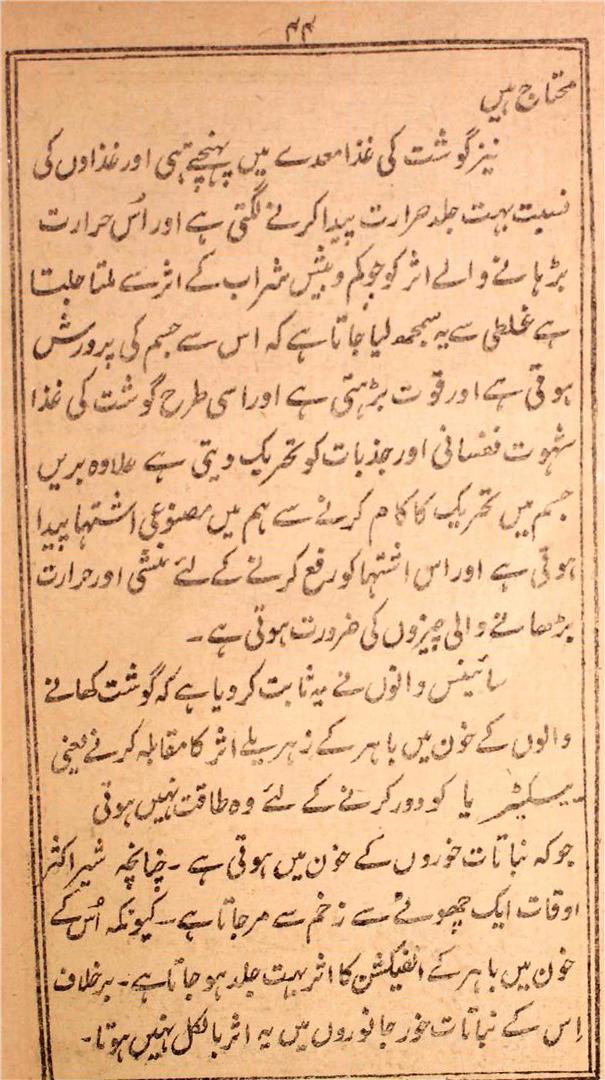 ۴۴
محتاج ہیں
نیز گوشت کی غذا معدے میں پہنچتے ہی اور غذاوں کی
نسبت بہت جلد حرارت پیدا کرنے لگتی ہے اور اُس حرارت
بڑہانے والے اثر کو جو کم و بیش شراب کے اثر سے ملتا جلتا
ہے غلطی سے یہ سمجھ لیا جاتا ہے کہ اس سے جسم کی پرورش
ہوتی ہے اور قوت بڑہتی ہے اور اسی طرح گوشت کی غذا
شہوت نفسانی اور جذبات کو تحریک دیتی ہے علاوہ بریں
جسم میں تحریک کا کام کرنے سے ہم میں مصنوعی اشتہا پیدا
ہوتی ہے اور اس اشتہا کو رفع کرنے کے لئے منشی اور حرارت
بڑھانے والی چیزوں کی ضرورت ہوتی ہے ۔
سائینس دانوں نے یہ ثابت کر دیا ہے کہ گوشت کھانے
والوں کے خون میں باہر کے زہریلے اثر کا مقابلہ کرنے یعنی
بیکٹیریا کو دور کرنے کے لئے وہ طاقت نہیں ہوتی
جو کہ نباتات خوروں کے خون میں ہوتی ہے ۔ چنانچہ شیر اکثر
اوقات ایک چھوٹے سے زخم سے مر جاتا ہے ۔ کیونکہ اُس کے
خون میں باہر کے انفیکشن کا اثر بہت جلد ہو جاتا ہے ۔ برخلاف
اِس کے نباتات خور جانوروں میں یہ اثر بالکل نہیں ہوتا ۔